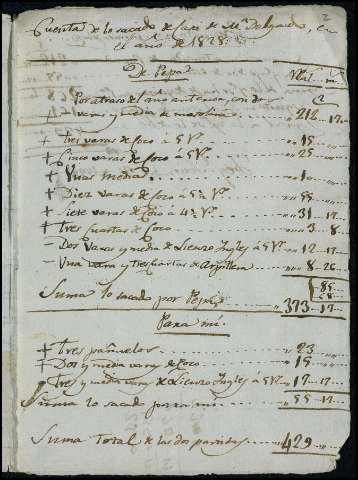 2
Cuenta de lo sacado de Casa de Mª Delgado, en
el año de 1828.
De Pepa Rlª. m.
Por atraso del año anterior, con dos
varas y media de 212 17.
+ Tres varas de Coco á 5 Vª 15
+ Cinco varas de Coco á 5 Vª 25
+ Unas medias 10
+ Diez varas de Coco á 5½ Vª 55
+ Siete varas de Coco á 4½ Vª 31 17
+ Tres Cuartas de Coco 3 8
- Dos Varas y media de Lienzo Ingles á 5 Vª 12 17
- Una vara y tres cuartas de Arpillera 8 26
85
28
Suma lo sacado por Pepa 373 17
Para mi.
+ Tres pañuelos 23
+ Dos y media varas de Coco 15
Tres y media varas de Lienzo Ingles á 5 Vª 17 17
Suma lo sacado para mi 55 17
Suma total de las dos partidas 429